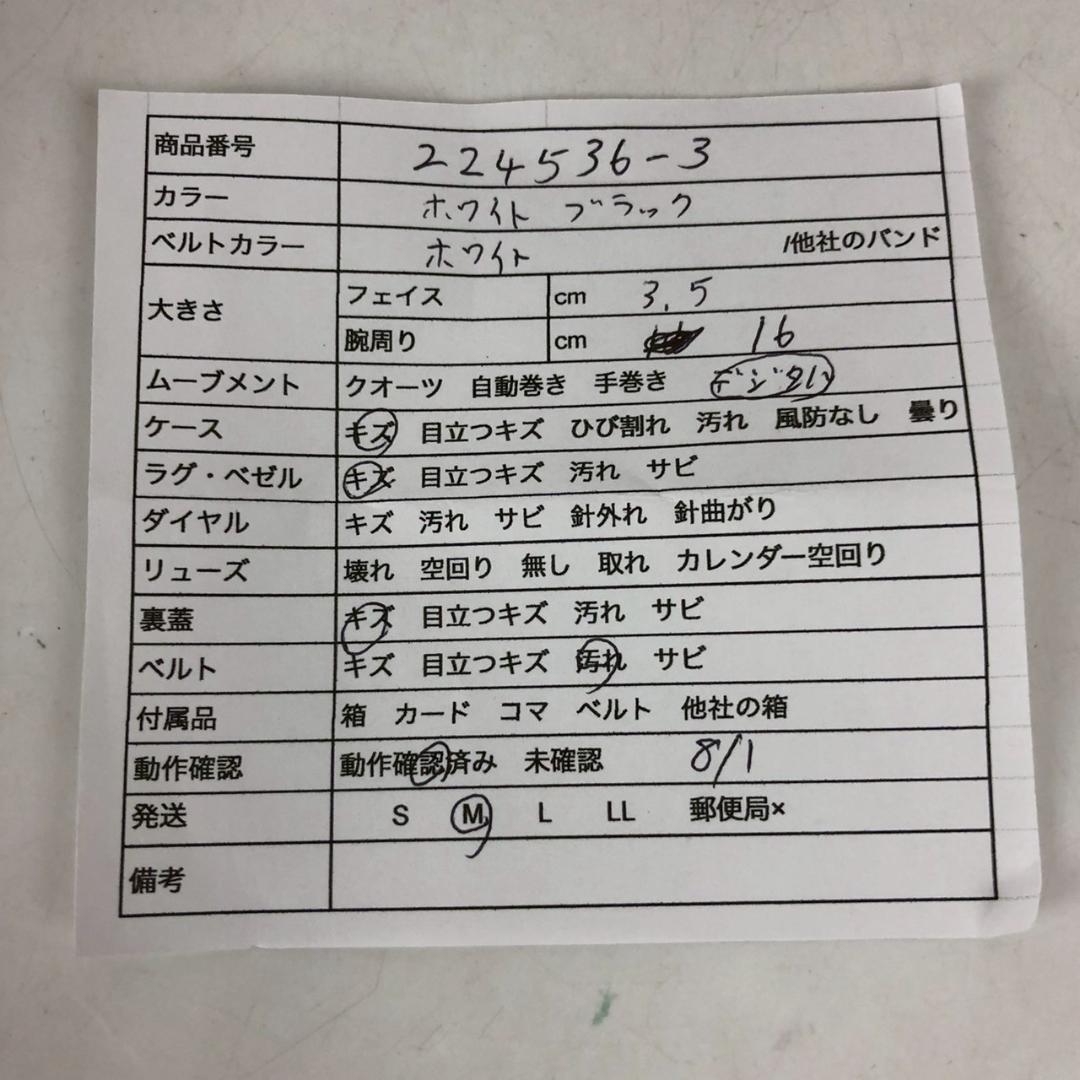 商品番号 224536-3
カラー ホワイト ブラック
ベルトカラー ホワイト /他社のバンド
大きさ フェイス cm 3.5
腕周り cm 16
ムーブメント クオーツ 自動巻き 手巻き デジタル
ケース キズ 目立つキズ ひび割れ 汚れ 風防なし 曇り
ラグ・ベゼル キズ 目立つキズ 汚れ サビ
ダイヤル キズ 汚れ サビ 針外れ 針曲がり
リューズ 壊れ 空回り 無し 取れ カレンダー空回り
裏蓋 キズ 目立つキズ 汚れ サビ
ベルト キズ 目立つキズ 汚れ サビ
付属品 箱 カード コマ ベルト 他社の箱
動作確認 動作確認済み 未確認 8/1
発送 S M L LL 郵便局×
備考